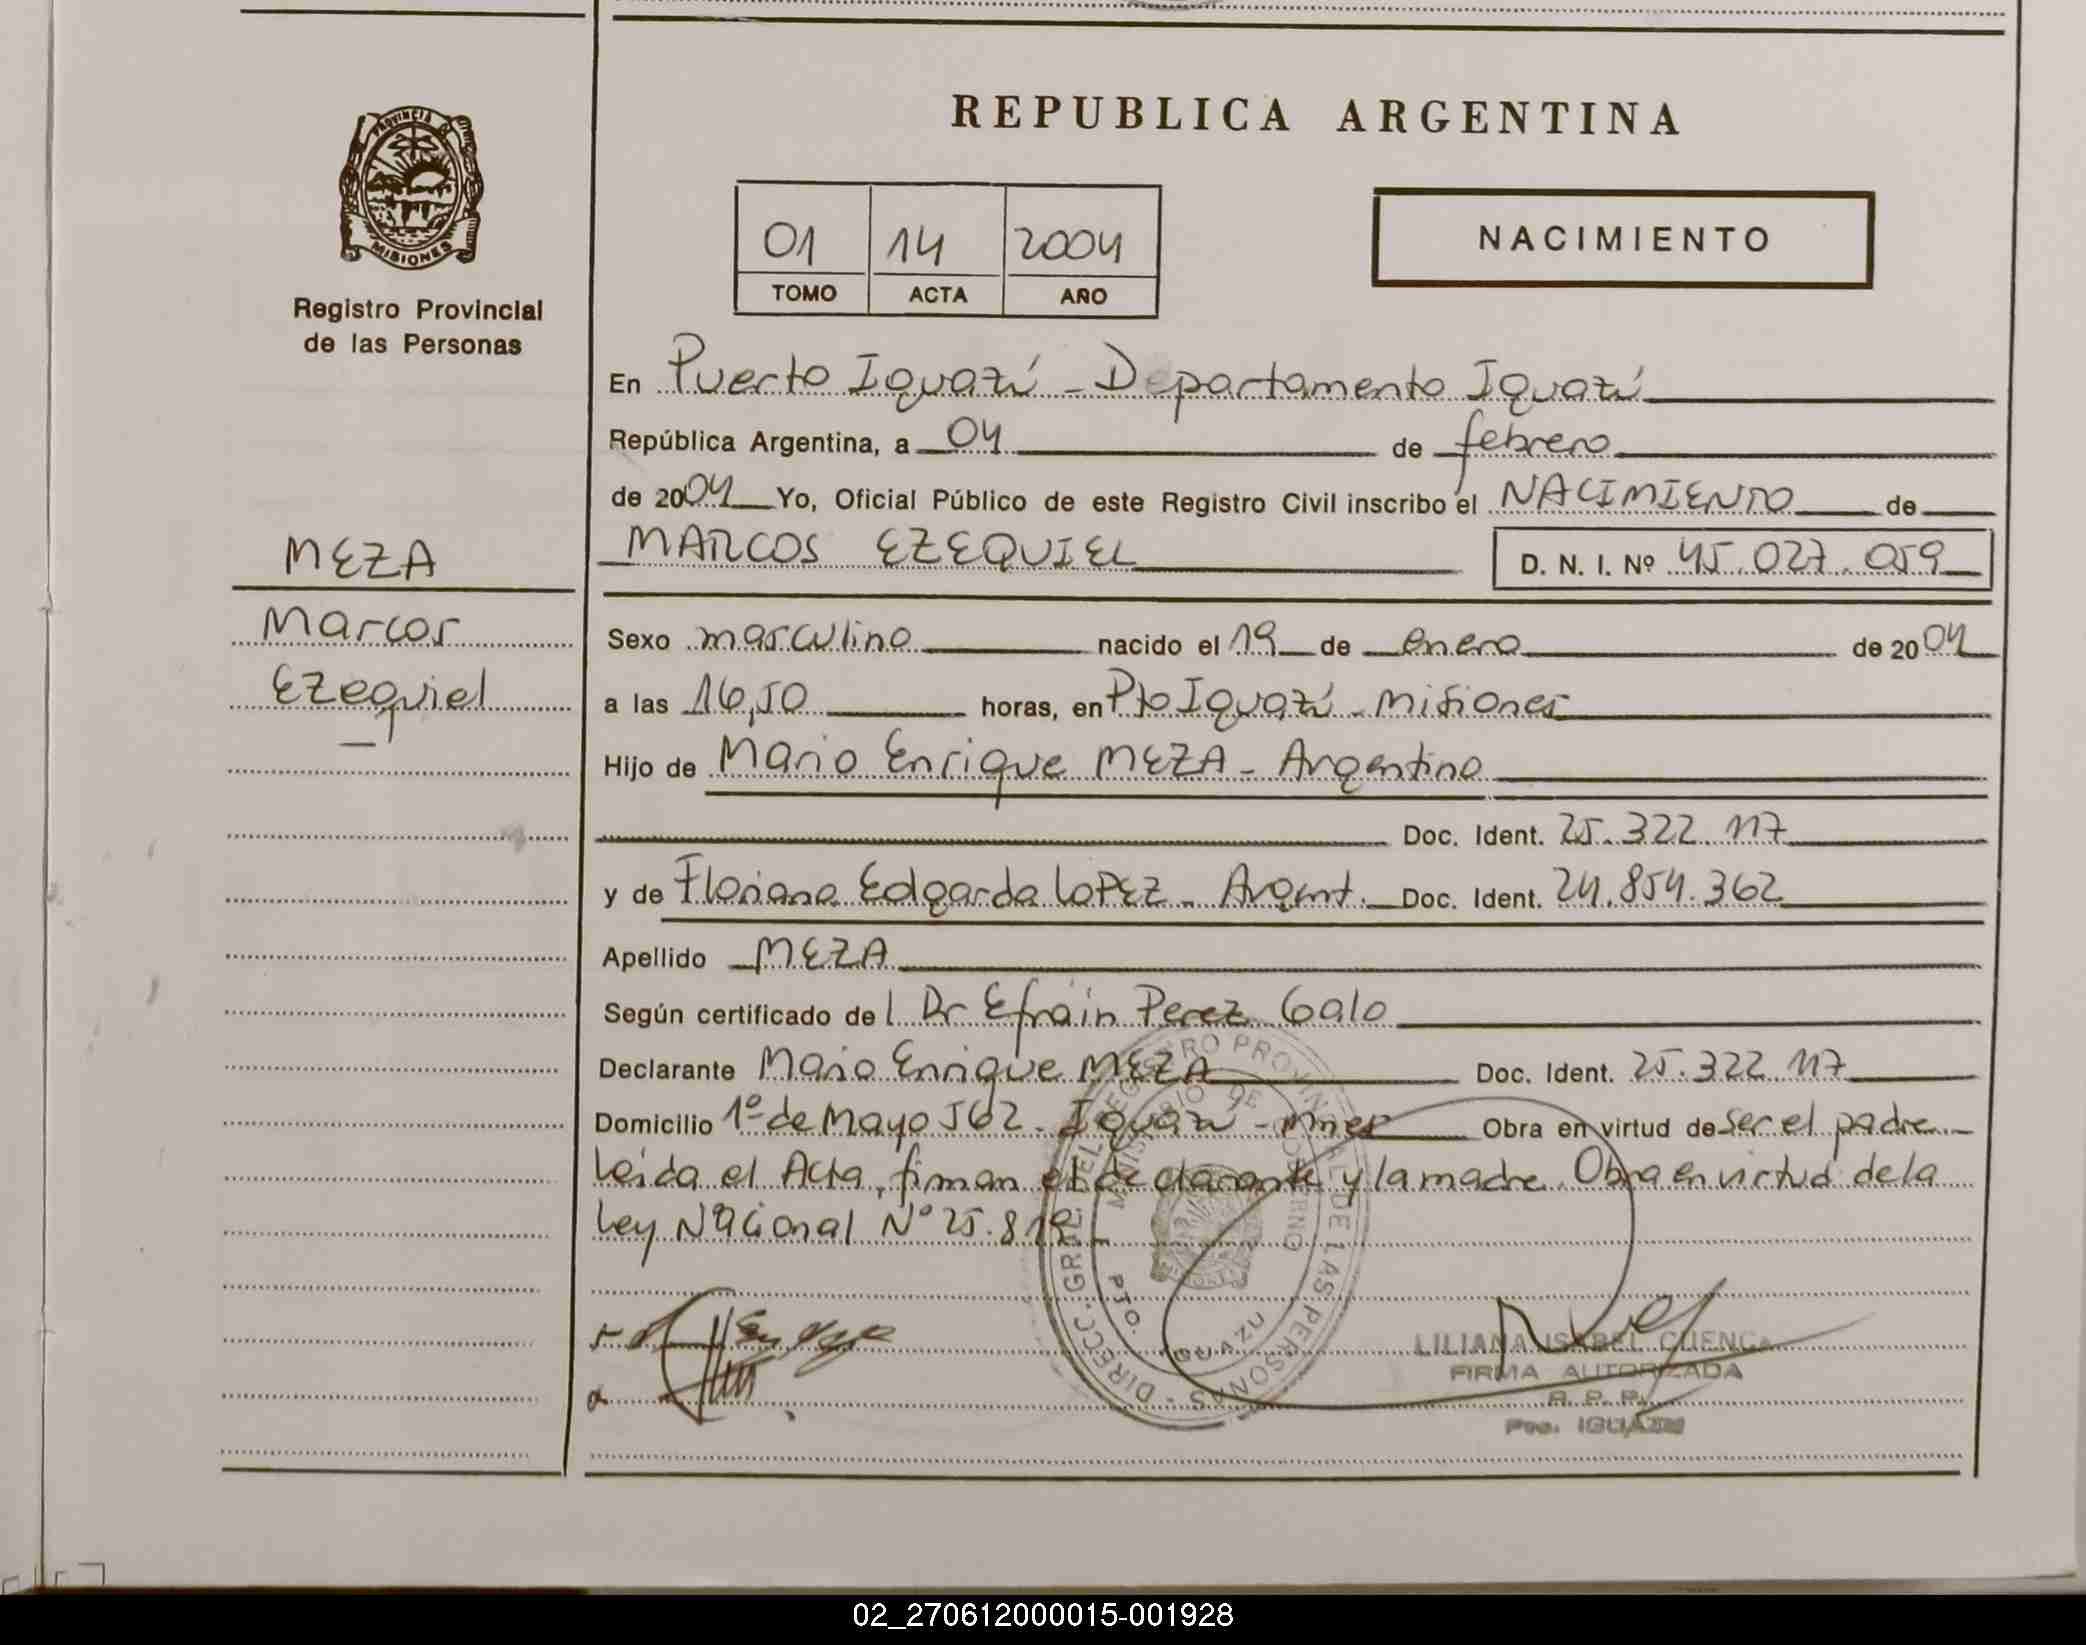 REPUBLICA ARGENTINA
PROVINCIA DE
MISIONES
Registro Provincial
de las Personas
MEZA
Marcos
Ezequiel
01 14 2004
TOMO ACTA AÑO
NACIMIENTO
En Puerto Iguazú - Departamento Iguazú
República Argentina, a 04 de febrero
de 2004 Yo, Oficial Público de este Registro Civil inscribo el NACIMIENTO de
MARCOS EZEQUIEL D. N. I. Nº 45.027.059
Sexo masculino nacido el 19 de enero de 2004
a las 16,50 horas, en Pto Iguazú - Misiones
Hijo de Mario Enrique MEZA - Argentino
Doc. Ident. 25.322.117
y de Floriana Edgarda LOPEZ - Argent. Doc. Ident. 24.854.362
Apellido MEZA
Según certificado del Dr Efraín Perez Galo
Declarante Mario Enrique MEZA Doc. Ident. 25.322.117
Domicilio 1º de Mayo 562 - Iguazú - Mnes Obra en virtud de ser el padre
Leida el Acta, firman el declarante y la madre. Obra en virtud de la
Ley Nacional Nº 25.819
DIRECC. GRAL. DEL REGISTRO PROVINCIAL DE LAS PERSONAS
MINISTERIO DE GOBIERNO
PTO. IGUAZU
LILIANA ISABEL CUENCA
FIRMA AUTORIZADA
R. P. P.
Pto. IGUAZU
02_270612000015-001928